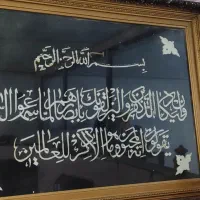 بسم الله الرحمن الرحيم
وإن يكاد الذين كفروا ليزلقونك بأبصارهم لما سمعوا الذ
يقولون إنه لمجنون وما هو إلا ذكر للعالمين